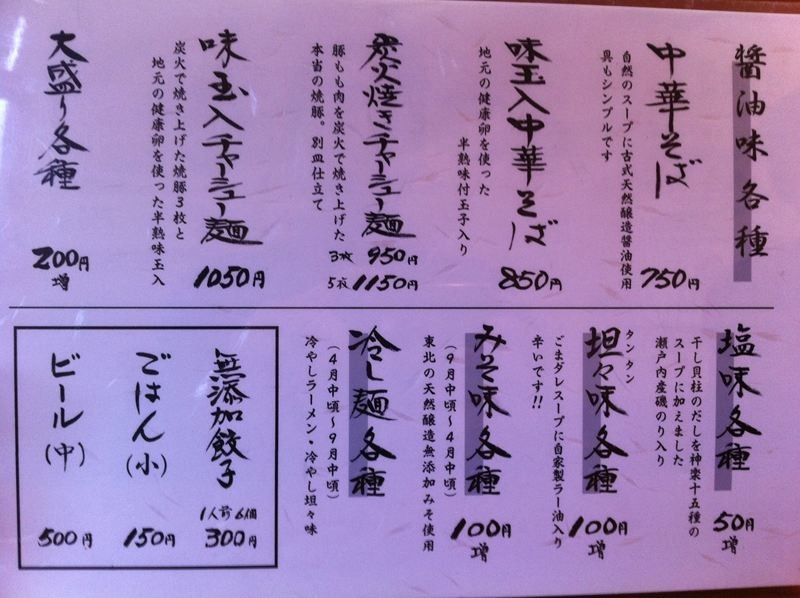 醤油味各種
中華そば
自然のスープに古式天然醸造醤油使用
具もシンプルです
750円
味玉入中華そば
地元の健康卵を使った
半熟味付玉子入り
850円
炭火焼きチャーシュー麺
豚もも肉を炭火で焼き上げた
本当の焼豚。別皿仕立て
3枚 950円
5枚 1150円
味玉入チャーシュー麺
炭火で焼き上げた焼豚3枚と
地元の健康卵を使った半熟味玉入
1050円
大盛り各種
200円
増
塩味各種
干し貝柱のだしを神楽十五種の
スープに加えました
瀬戸内産磯のり入り
50円
増
タンタン
坦々味各種
ごまダレスープに自家製ラー油入り
辛いです!!
100円
増
みそ味各種
(9月中頃〜4月中頃)
東北の天然醸造無添加みそ使用
100円
増
冷し麺各種
(4月中頃〜9月中頃)
冷やしラーメン・冷やし坦々味
無添加餃子
1人前6個
300円
ごはん(小)
150円
ビール(中)
500円